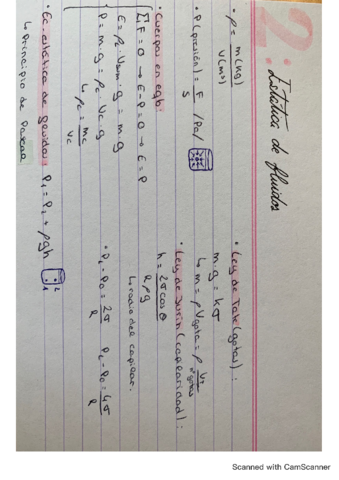 2: Estática de fluidos
• ρ = m(kg) / V(m³)
• P(presión) = F / S /Pa/
• Cuerpos en eqb:
∑F = 0 → E - P = 0 → E = P
E = ρL · Vsum · g = m · g
P = m · g = ρc · Vc · g
↳ ρc = mc / Vc
• Ec. estática de fluidos: P1 = P2 + ρgh
2
1
↳ Principio de Pascal
• Ley de Tate (gotas):
m · g = kσ
↳ m = ρ Vgota = ρ VT / nºgotas
• Ley de Jurin (capilaridad):
h = 2σcosθ / Rρg
↳ radio del capilar.
• Pi - Po = 2σ / R
Pi - Po = 4σ / R
Scanned with CamScanner